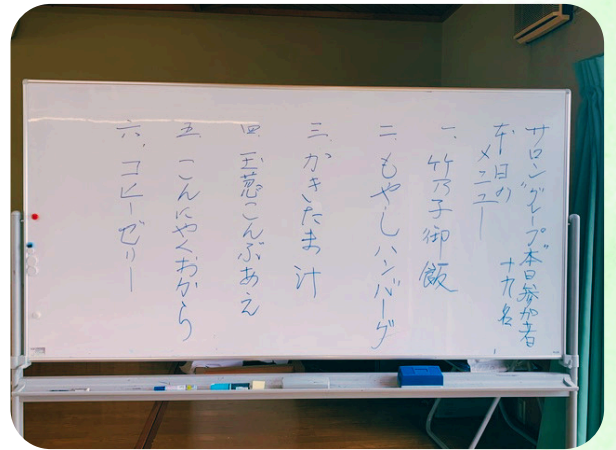 サロングループ本日参加者
十九名
本日の
メニュー
一、竹乃子御飯
二、もやしハンバーグ
三、かきたま汁
四、玉葱こんぶあえ
五、こんにゃくおから
六、コヒーゼリー